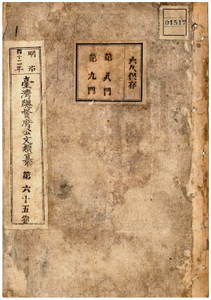 01517
永久保存
第八門
第九門
明治
四十二年
臺灣總督府公文類纂
第六十五卷